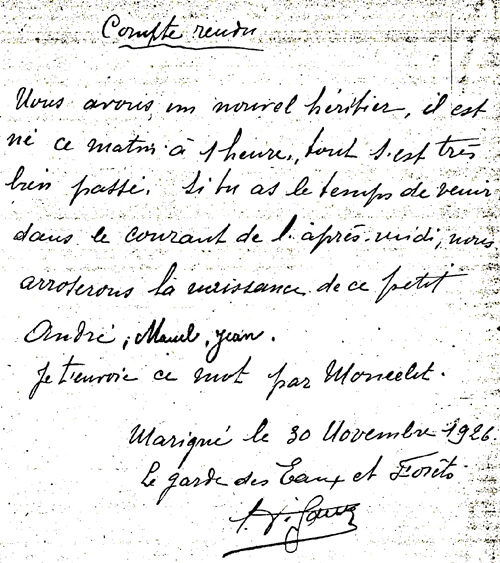 Compte rendu
Nous avons, un nouvel héritier, il est
né ce matin à 1 heure, tout s'est très
bien passé. Si tu as le temps de venir
dans le courant de l'après-midi, nous
arroserons la naissance de ce petit
André, Marcel, Jean.
Je t'envoie ce mot par Moncelet.
Marigné le 30 Novembre 1926.
Le garde des Eaux et Forêts